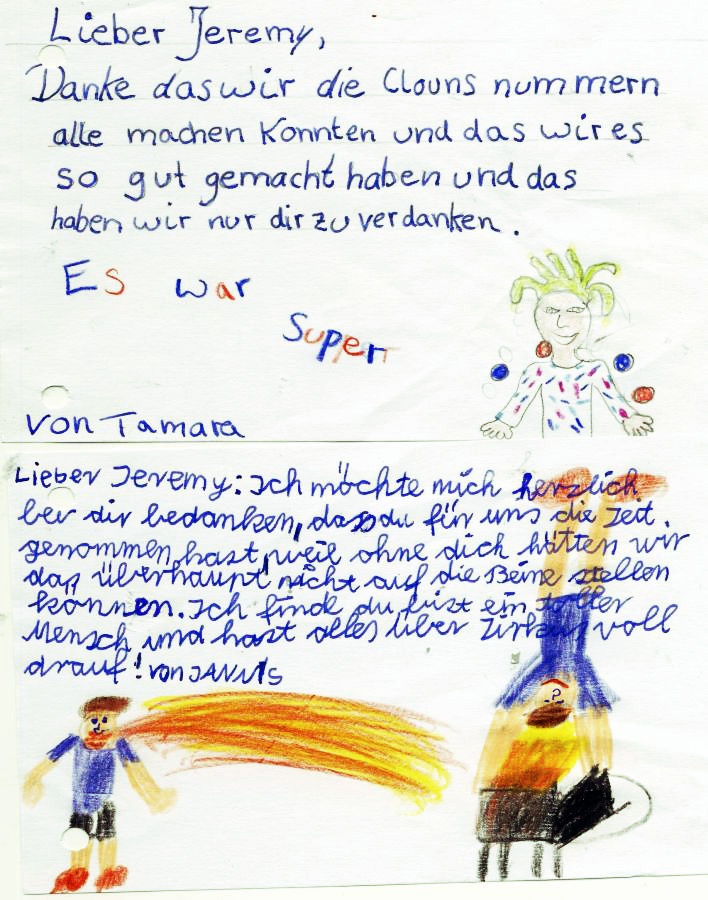 Lieber Jeremy,
Danke das wir die Clouns nummern
alle machen Konnten und das wir es
so gut gemacht haben und das
haben wir nur dir zu verdanken.
Es war
Super
von Tamara
Lieber Jeremy: Ich möchte mich herzlich
ber dir bedanken, das du für uns die Zeit
genommen hast, weil ohne dich hätten wir
das überhaupt nicht auf die Beine stellen
können. Ich finde du bist ein toller
Mensch und hast alles über Zirkus voll
drauf! von JANNIS
?